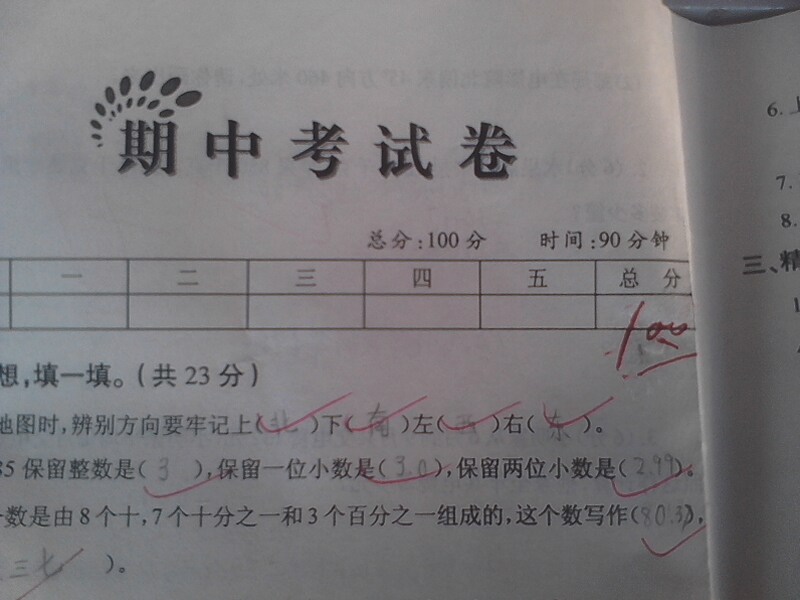 期中考试卷
总分:100分 时间:90分钟
一 二 三 四 五 总分
100
想,填一填。(共23分)
地图时,辨别方向要牢记上(北)下(南)左(西)右(东)。
85保留整数是(3),保留一位小数是(3.0),保留两位小数是(2.99)。
数是由8个十,7个十分之一和3个百分之一组成的,这个数写作(80.37),
三七)。
6.上
7.
8.
三、精
1